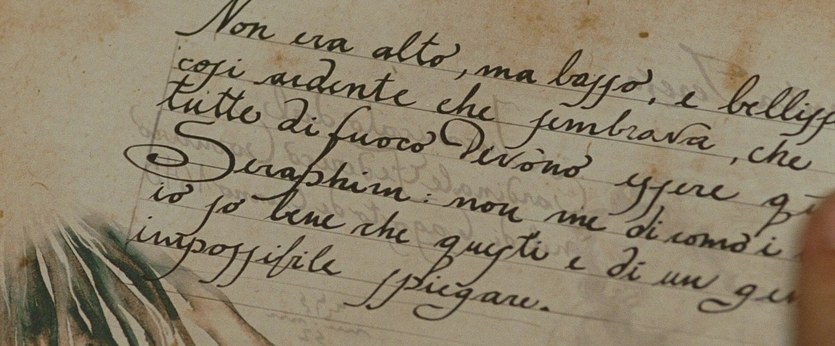 Non era alto, ma basso, e belliss
così ardente che sembrava, che
tutte di fuoco Devono essere q
Seraphim: non me dicono i
io so bene che questi e di un gen
impossibile spiegare.